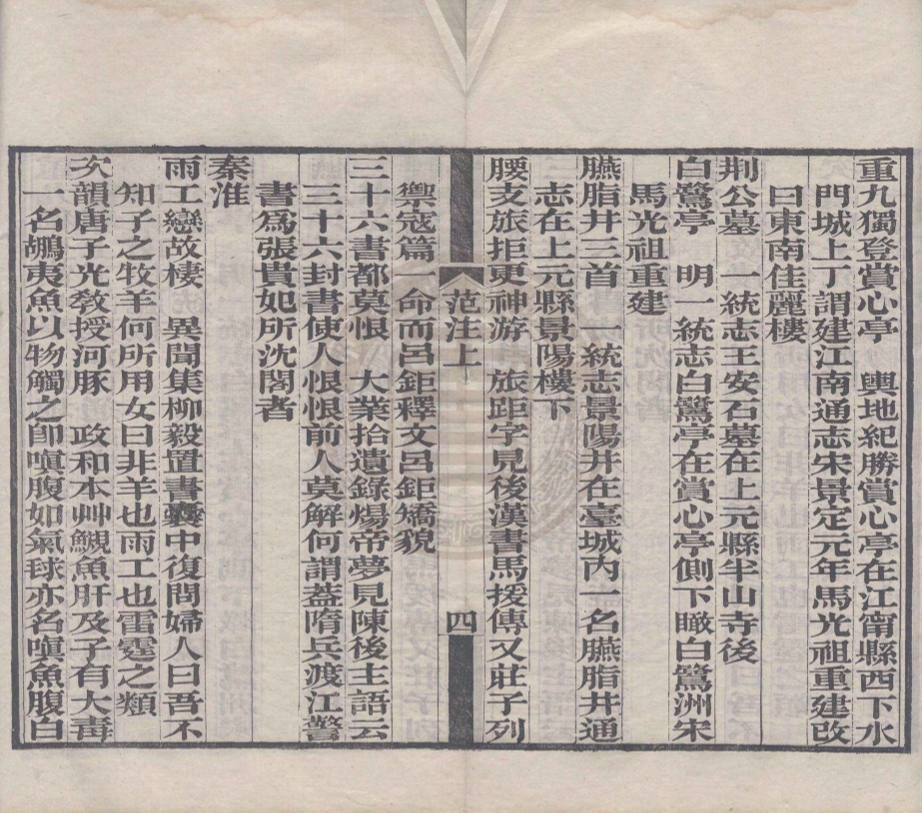 重九獨登賞心亭　輿地紀勝賞心亭在江甯縣西下水
門城上丁謂建江南通志宋景定元年馬光祖重建改
曰東南佳麗樓
荆公墓　一統志王安石墓在上元縣半山寺後
白鷺亭　明一統志白鷺亭在賞心亭側下瞰白鷺洲宋
馬光祖重建
臙脂井三首　一統志景陽井在臺城內一名臙脂井通
志在上元縣景陽樓下
腰支旅拒更神游　旅距字見後漢書馬援傳又莊子列
范注上
四
禦寇篇一命而呂鉅釋文呂鉅矯貌
三十六書都莫恨　大業拾遺錄煬帝夢見陳後主語云
三十六封書使人恨恨前人莫解何謂葢隋兵渡江警
書爲張貴妃所沈閣者
秦淮
雨工巒故棲　異聞集柳毅置書囊中復問婦人曰吾不
知子之牧羊何所用女曰非羊也雨工也雷霆之類
次韻唐子光敎授河豚　政和本艸䲅魚肝及子有大毒
一名鶘夷魚以物觸之卽嗔腹如氣球亦名嗔魚腹白